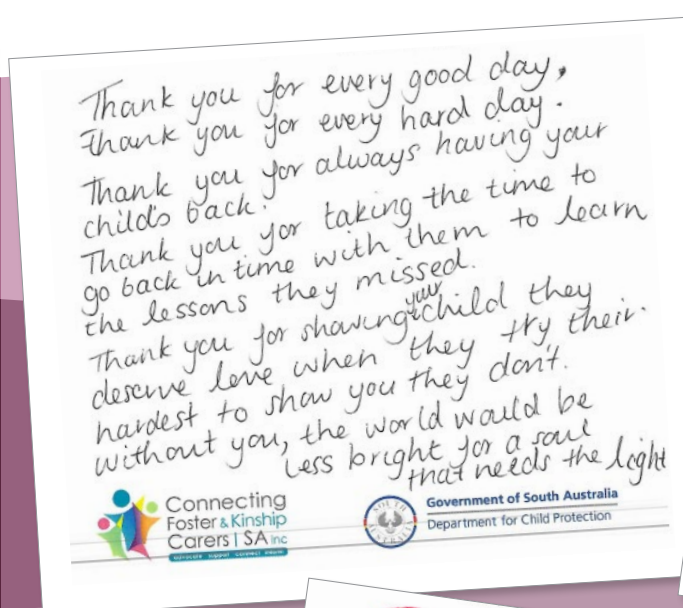 Thank you for every good day,
Thank you for every hard day.
Thank you for always having your
child's back.
Thank you for taking the time to
go back in time with them to learn
the lessons they missed.
Thank you for showing your child they
deserve love when they try their
hardest to show you they don't.
without you, the world would be
less bright for a soul
that needs the light
Connecting
Foster & Kinship
Carers | SA Inc
advocate support connect inform
Government of South Australia
Department for Child Protection
SOUTH AUSTRALIA